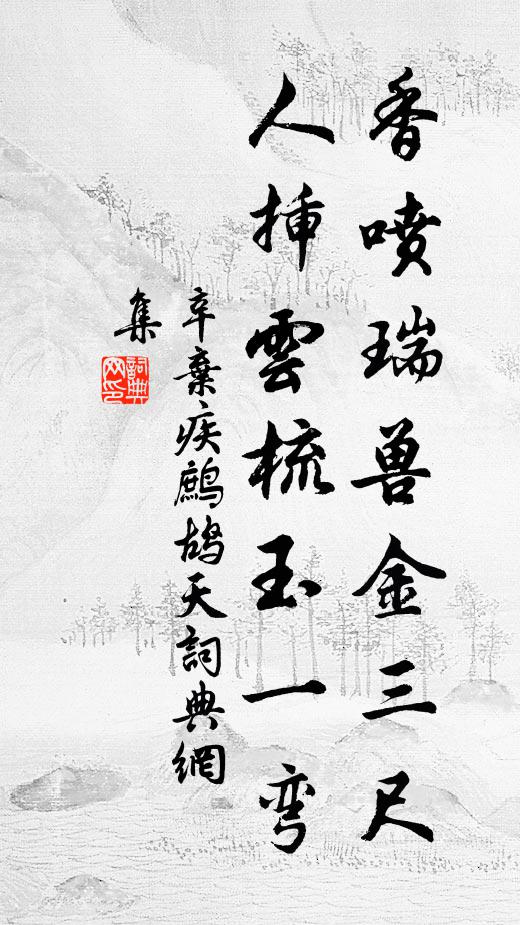 香喷瑞兽金三尺
人插雲梳玉一弯
辛棄疾鷓鴣天詞典網
集
詞典網印